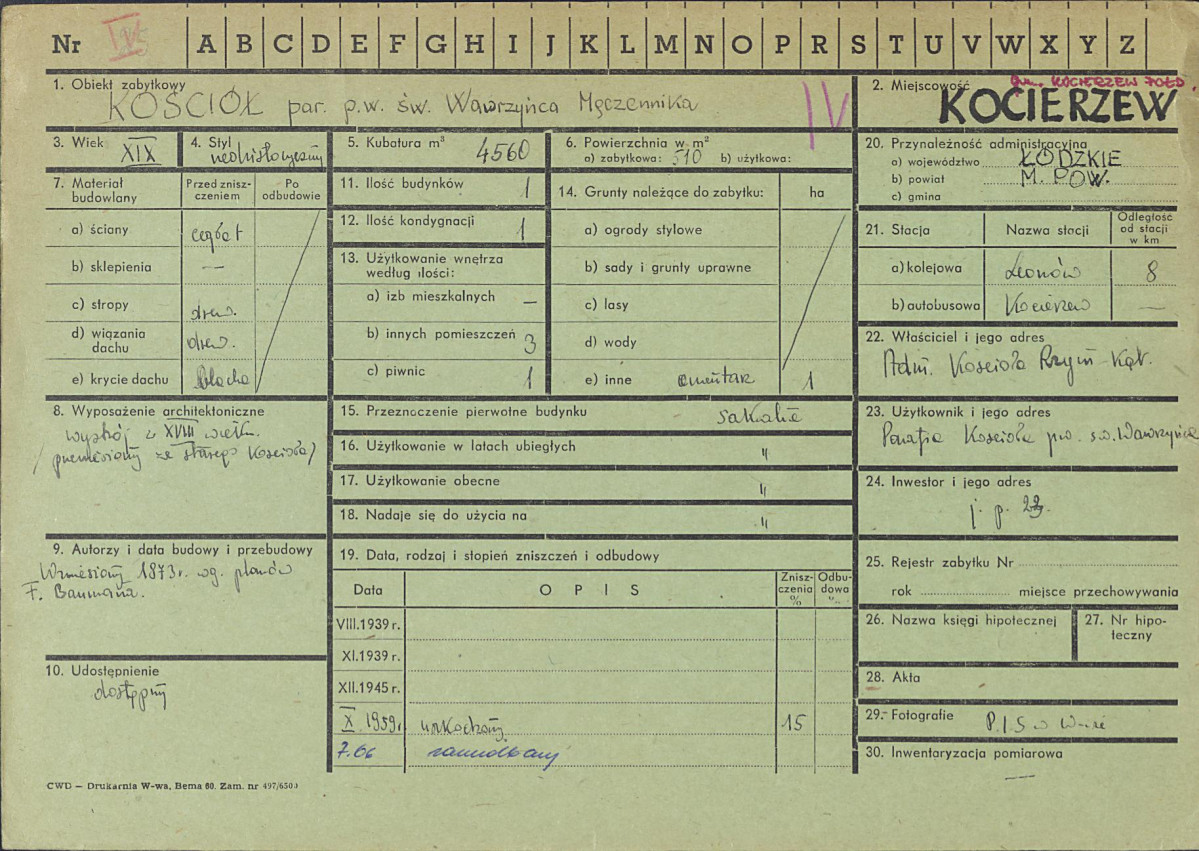 Nr IV
A B C D E F G H I J K L M N O P R S T U V W X Y Z
1. Obiekt zabytkowy
KOŚCIÓŁ par. p.w. św. Wawrzyńca Męczennika
IV
2. Miejscowość
gm. KOCIERZEW POŁD.
KOCIERZEW
3. Wiek XIX
4. Styl neohistoryczny
5. Kubatura m³ 4560
6. Powierzchnia w m²
a) zabytkowa: 510 b) użytkowa:
7. Materiał budowlany
Przed zniszczeniem
Po odbudowie
a) ściany cegła t
b) sklepienia —
c) stropy drew.
d) wiązania dachu drew.
e) krycie dachu blacha
8. Wyposażenie architektoniczne
wystrój z XVIII wieku.
/przeniesiony ze starego kościoła/
9. Autorzy i data budowy i przebudowy
Wzniesiony 1873r. wg. planów
F. Baumana.
10. Udostępnienie
dostępny
11. Ilość budynków 1
12. Ilość kondygnacji 1
13. Użytkowanie wnętrza
według ilości:
a) izb mieszkalnych —
b) innych pomieszczeń 3
c) piwnic 1
14. Grunty należące do zabytku: ha
a) ogrody stylowe
b) sady i grunty uprawne
c) lasy
d) wody
e) inne cmentarz 1
15. Przeznaczenie pierwotne budynku sakralne
16. Użytkowanie w latach ubiegłych "
17. Użytkowanie obecne "
18. Nadaje się do użycia na "
19. Data, rodzaj i stopień zniszczeń i odbudowy
Data
OPIS
Zniszczenia %
Odbudowa %
VIII.1939 r.
XI.1939 r.
XII.1945 r.
X.1959r. uszkodzony 15
7.66 zaniedbany
20. Przynależność administracyjna
a) województwo ŁÓDZKIE
b) powiat M. POW.
c) gmina
21. Stacja
Nazwa stacji
Odległość od stacji w km
a) kolejowa Leonów 8
b) autobusowa Kocierzew —
22. Właściciel i jego adres
Adm. Kościoła Rzym-Kat.
23. Użytkownik i jego adres
Parafia Kościoła pw. św. Wawrzyńca
24. Inwestor i jego adres
j. p. 23.
25. Rejestr zabytku Nr
rok miejsce przechowywania
26. Nazwa księgi hipotecznej
27. Nr hipoteczny
28. Akta
29. Fotografie P.I.S w
30. Inwentaryzacja pomiarowa
—
CWD — Drukarnia W-wa, Bema 60. Zam. nr 497/6500